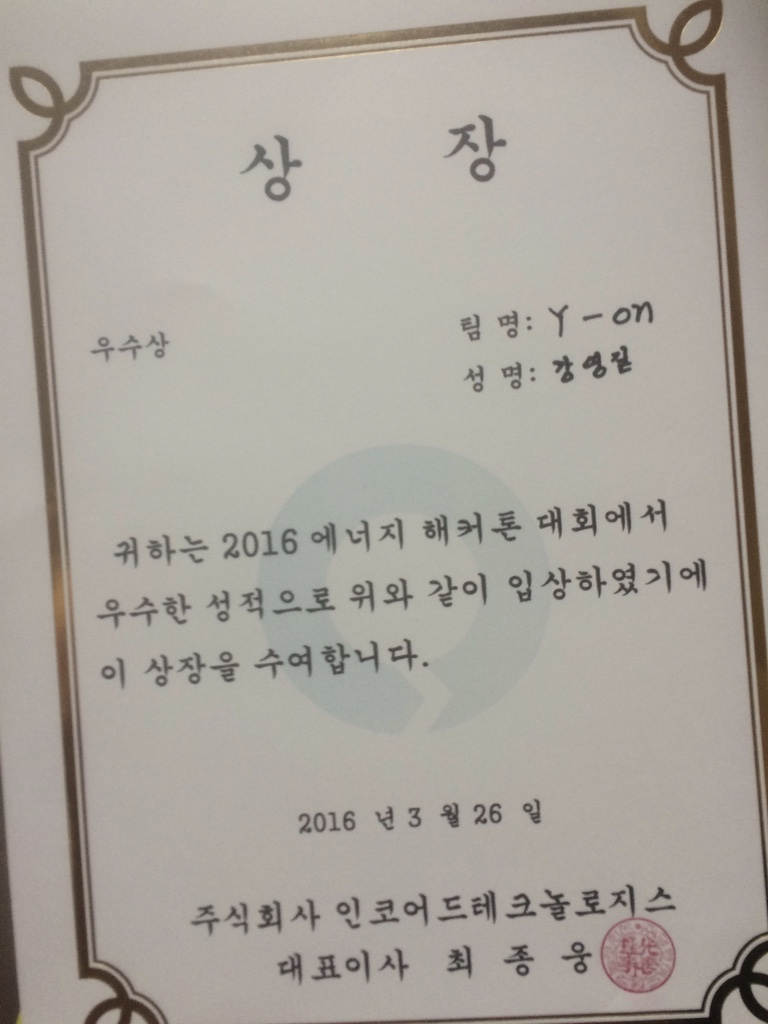 상 장
우수상
팀 명: Y-on
성 명: 강영질
귀하는 2016 에너지 해커톤 대회에서
우수한 성적으로 위와 같이 입상하였기에
이 상장을 수여합니다.
2016 년 3 월 26 일
주식회사 인코어드테크놀로지스
대표이사 최 종 웅